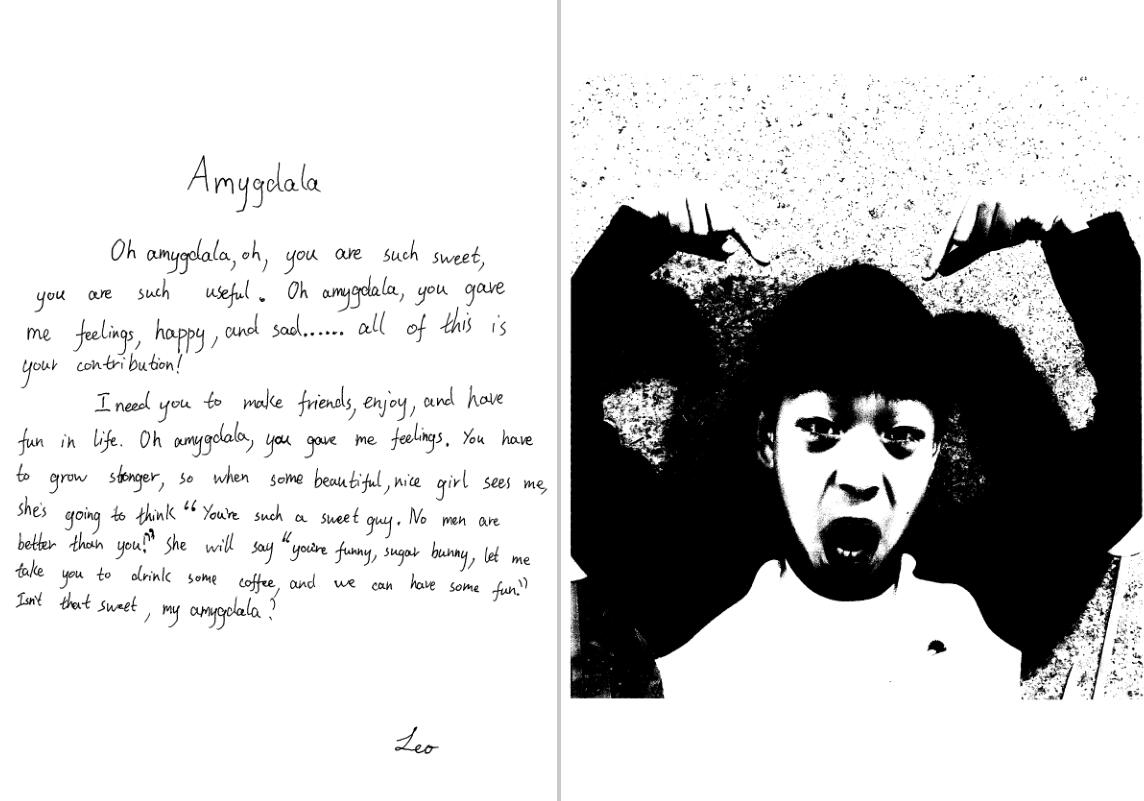 Amygdala
Oh amygdala, oh, you are such sweet,
you are such useful. Oh amygdala, you gave
me feelings, happy, and sad...... all of this is
your contribution!
I need you to make friends, enjoy, and have
fun in life. Oh amygdala, you gave me feelings. You have
to grow stonger, so when some beautiful, nice girl sees me,
she's going to think "You're such a sweet guy. No men are
better than you!" She will say "you're funny, sugar bunny, let me
take you to drink some coffee, and we can have some fun."
Isn't that sweet, my amygdala?
Leo